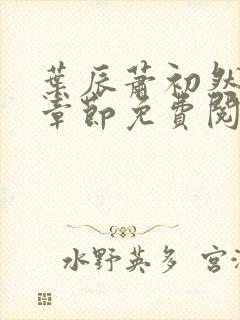 葉辰蕭初然
章節免費閱
水野英多 宮